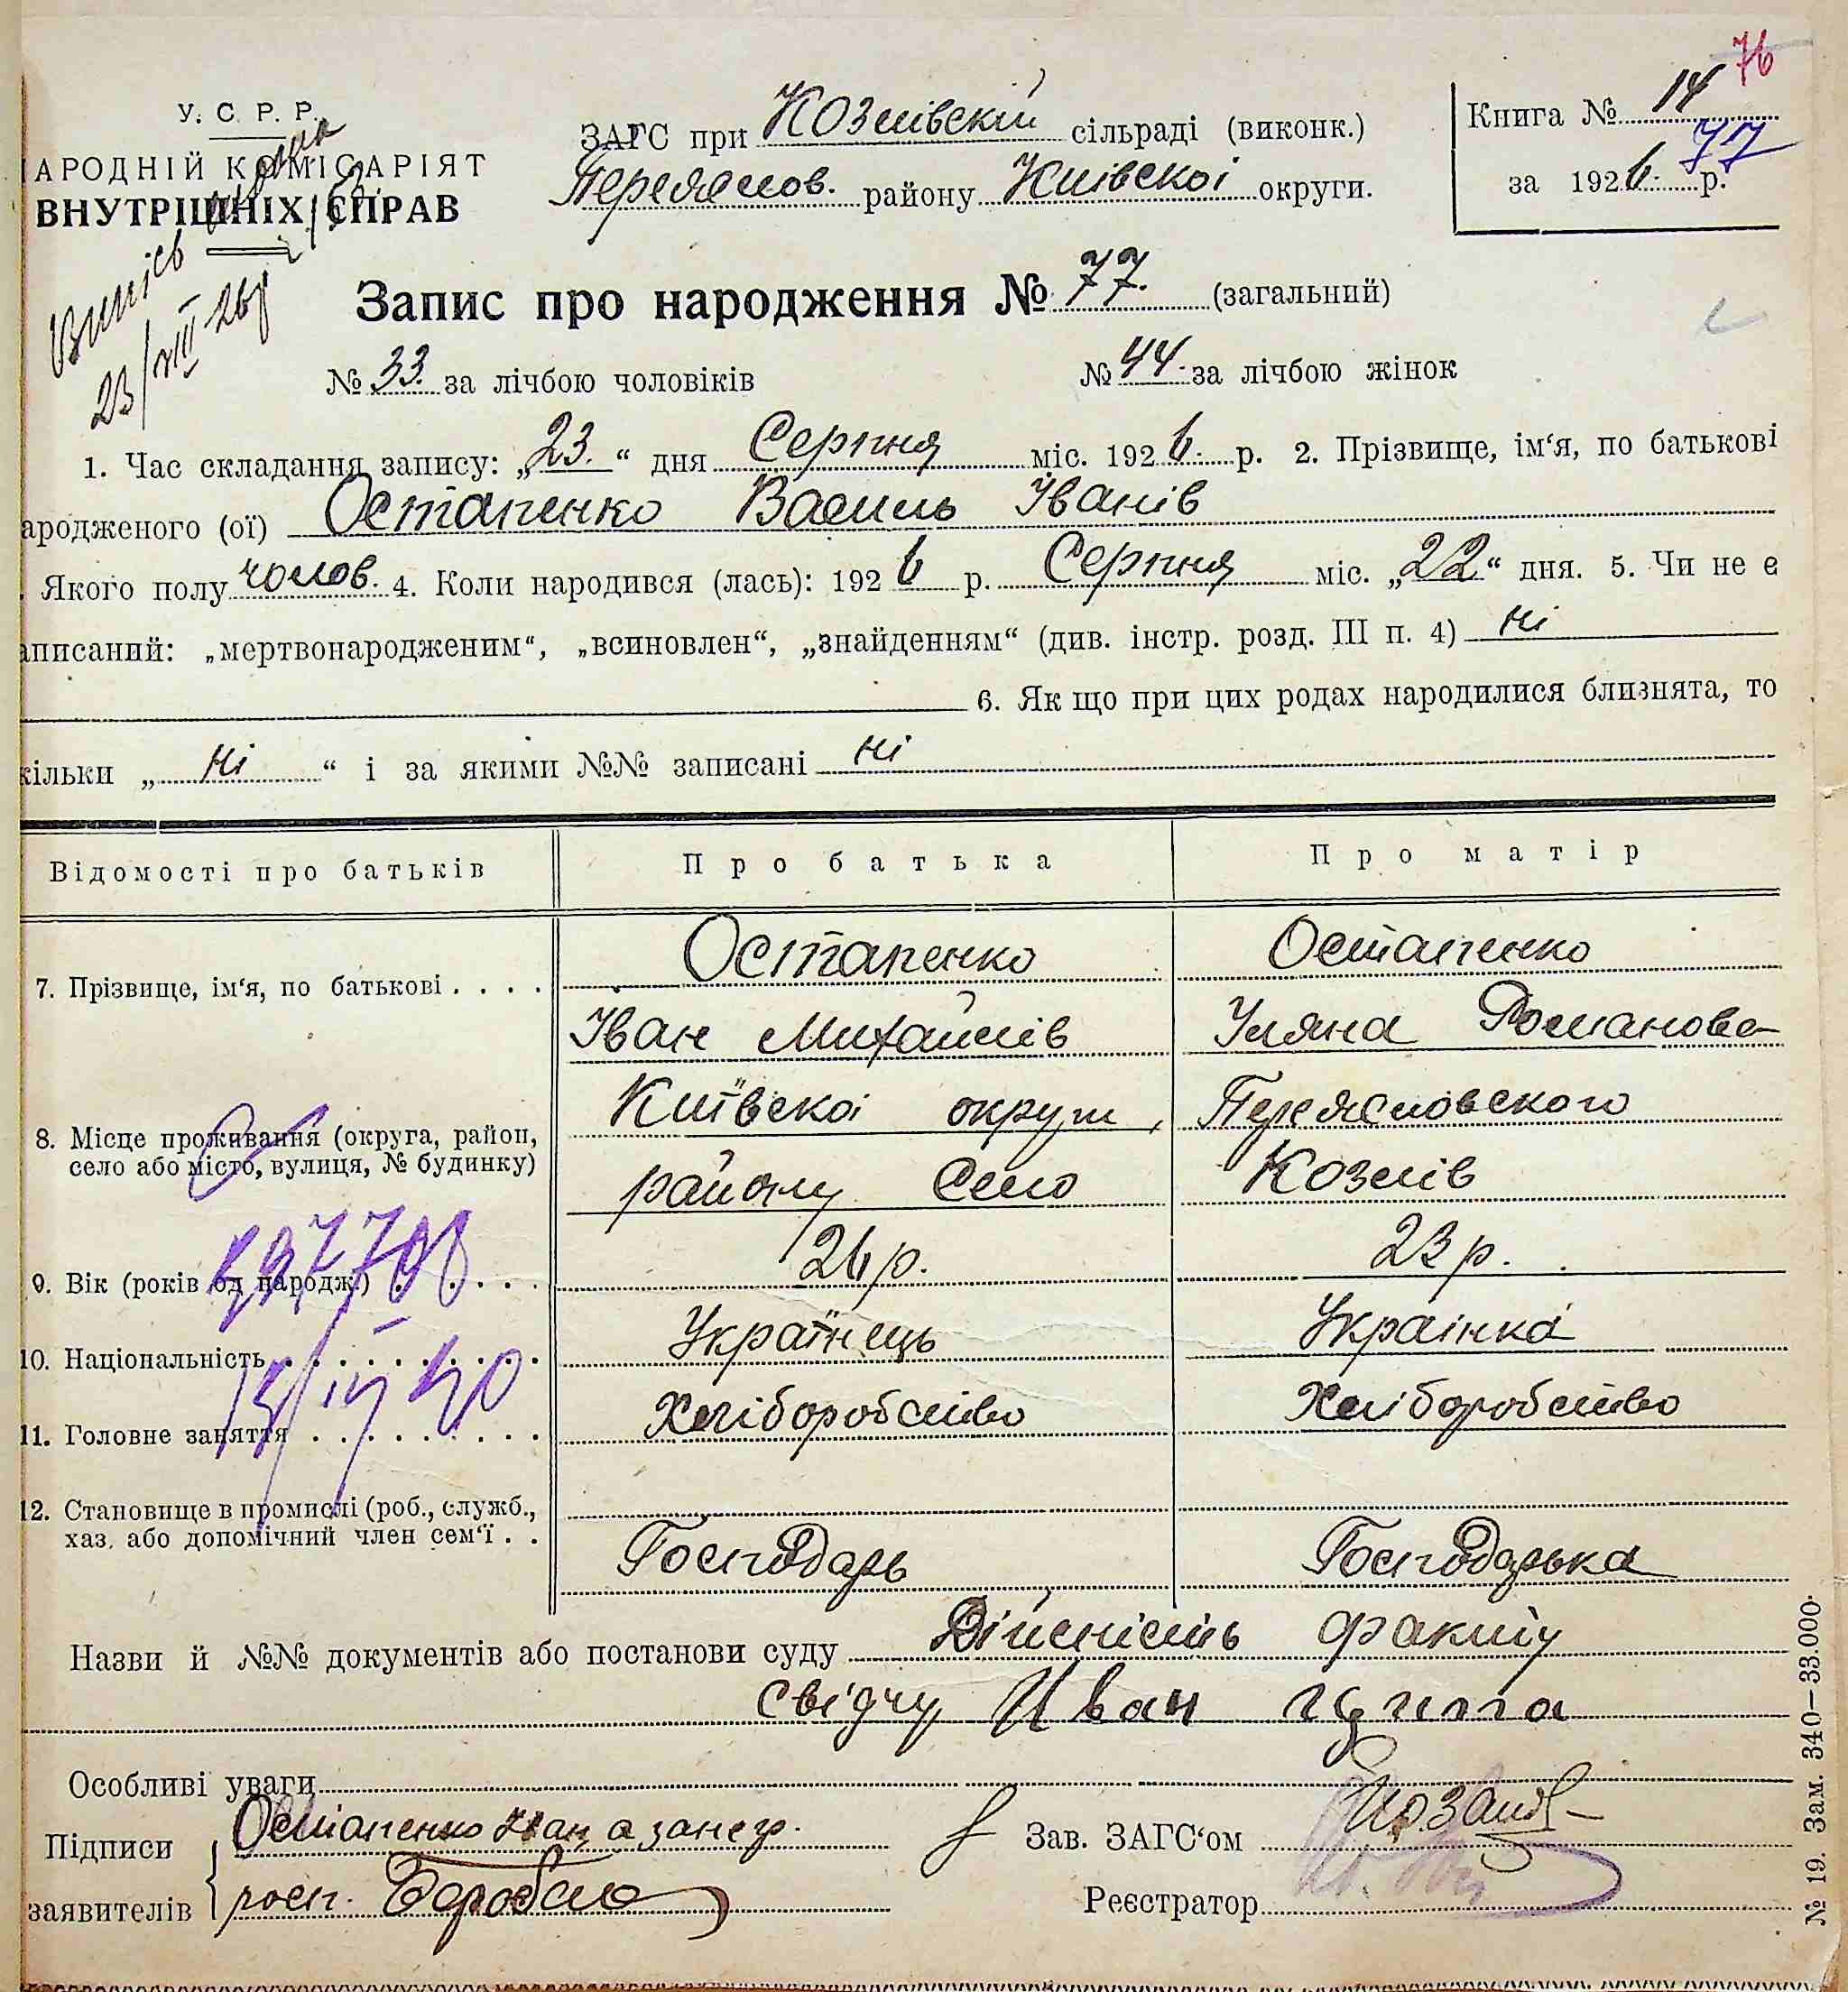 76
У. С. Р. Р.
АРОДНІЙ КОМІСАРІЯТ
ВНУТРІШНІХ СПРАВ
ЗАГС при Козлівскій сільраді (виконк.)
Переяслов. району Київскоі округи.
Книга № 14
77
за 1926. р.
23/VIII 26р
Запис про народження № 77. (загальний)
№ 33. за лічбою чоловіків № 44. за лічбою жінок
1. Час складання запису: „23.“ дня Серпня міс. 1926. р. 2. Прізвище, ім‘я, по батькові
ародженого (ої) Остапенко Василь Іванів
. Якого полу чолов. 4. Коли народився (лась): 1926 р. Серпня міс. „22“ дня. 5. Чи не є
аписаний: „мертвонародженим“, „всиновлен“, „знайденням“ (див. інстр. розд. III п. 4) ні
6. Як що при цих родах народилися близнята, то
кільки „ ні “ і за якими №№ записані ні
Відомості про батьків Про батька Про матір
7. Прізвище, ім‘я, по батькові . . . . Остапенко Остапенко
Іван Михайлів Уляна Романова
8. Місце проживання (округа, район, село або місто, вулиця, № будинку) Київскоі округи, Переясловского
району Село Козлів
9. Вік (років од народж.) . . . . 26р. 23р.
10. Національність . . . . . . . . . . Українець Украінка
11. Головне заняття . . . . . . . . . Хліборобство Хліборобство
12. Становище в промислі (роб., служб., хаз. або допомічний член сем‘ї . . Господарь Господарька
Назви й №№ документів або постанови суду Дійсність факту
свідчу Иван Цима
Особливі уваги
Підписи заявителів Остапенко Іван а за негр.
росп.
Зав. ЗАГС‘ом
Реєстратор
№ 19. Зам. 340—33.000.